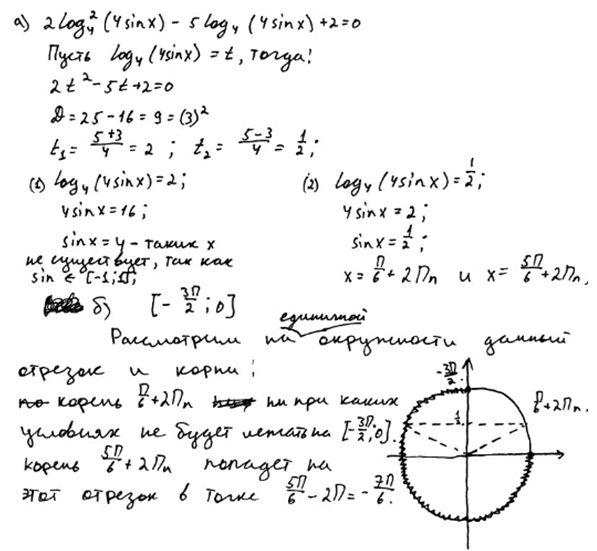 а) 2log₄²(4sinx) - 5log₄(4sinx)+2=0
Пусть log₄(4sinx) = t, тогда:
2t²-5t+2=0
D=25-16=9=(3)²
t₁= (5+3)/4 = 2 ; t₂= (5-3)/4 = 1/2;
(1) log₄(4sinx)=2;
4sinx=16;
sinx=4 - таких x
не существует, так как
sin ∈ [-1;1];
(2) log₄(4sinx)=1/2;
4sinx=2;
sinx=1/2;
x= П/6 + 2Пn и x= 5П/6 + 2Пn,
б) [- 3П/2 ; 0]
единичной
Рассмотрим на окружности данный
отрезок и корни:
корень П/6+2Пn ни при каких
условиях не будет лежать на [-3П/2;0].
корень 5П/6 + 2Пn попадет на
этот отрезок в точке 5П/6 - 2П = - 7П/6.
-3П/2
1/2
П/6+2Пn.